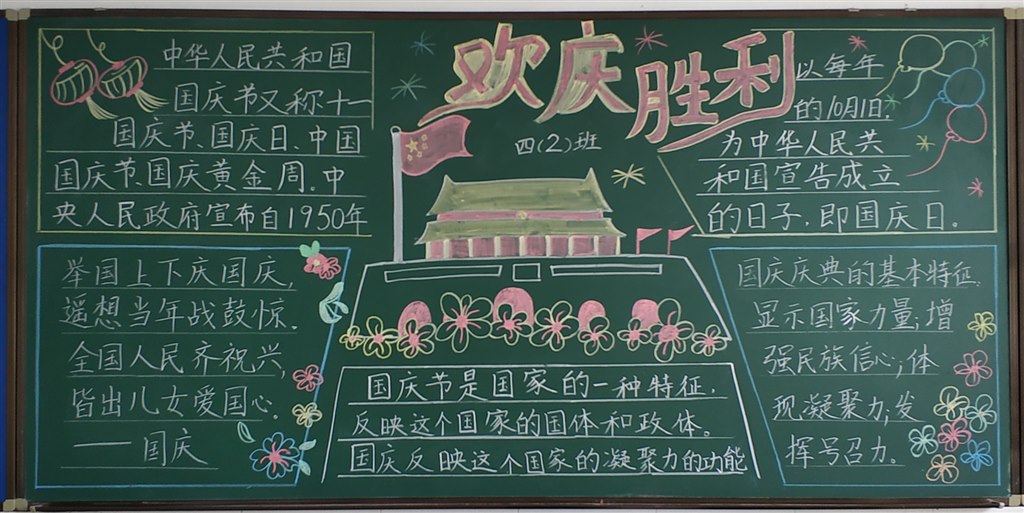 欢庆胜利
四(2)班
中华人民共和国
国庆节又称十一
国庆节、国庆日、中国
国庆节、国庆黄金周。中
央人民政府宣布自1950年
以每年
的10月1日,
为中华人民共
和国宣告成立
的日子,即国庆日。
举国上下庆国庆,
遥想当年战鼓惊。
全国人民齐祝兴,
皆出儿女爱国心。
——国庆
国庆节是国家的一种特征,
反映这个国家的国体和政体。
国庆反映这个国家的凝聚力的功能
国庆庆典的基本特征,
显示国家力量;增
强民族信心;体
现凝聚力;发
挥号召力。